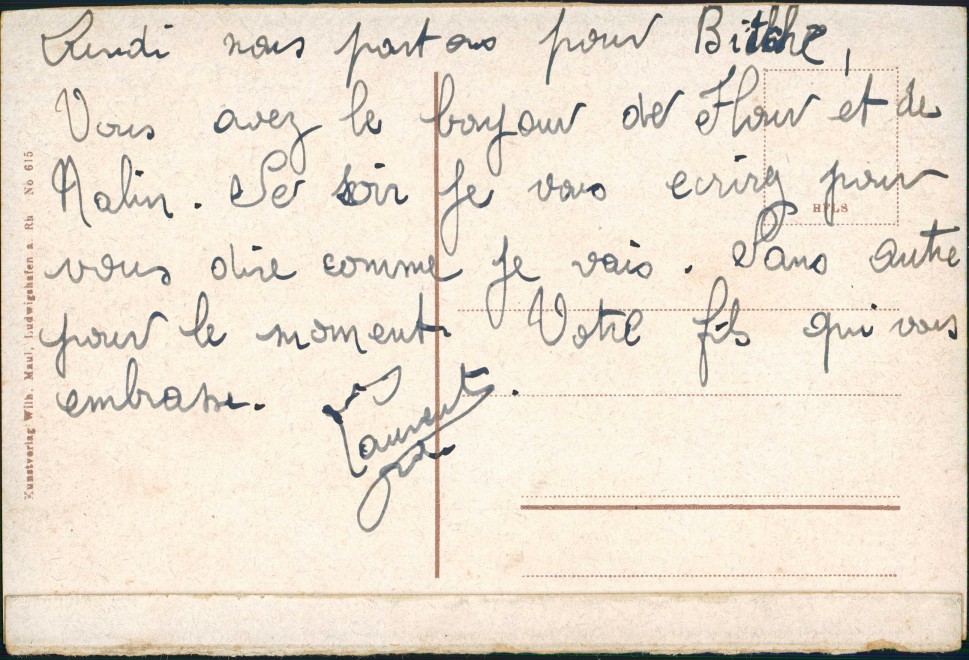 Lundi nous partons pour Bitche,
Vous avez le bonjour de Flour et de
Malin. Ce soir je vous ecrirez pour
vous dire comme je vais. Sans autre
pour le moment. Votre fils qui vous
embrasse.
Laurent
Kunstverlag Wilh. Maul, Ludwigshafen a. Rh No 615